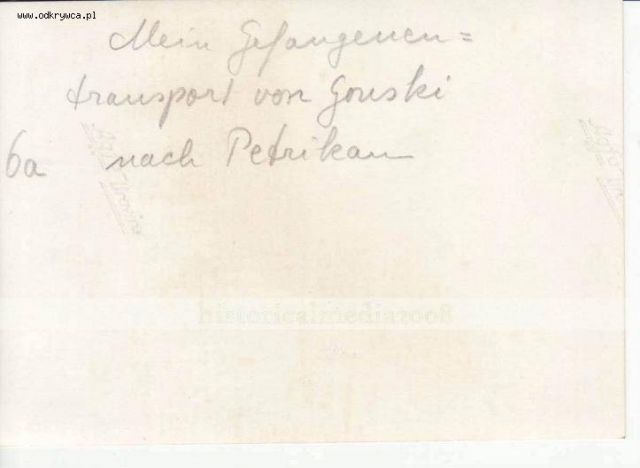 www.odkrywca.pl
Mein Gefangenen=
transport von Gonski
6a nach Petrikau
historicalmedia2008